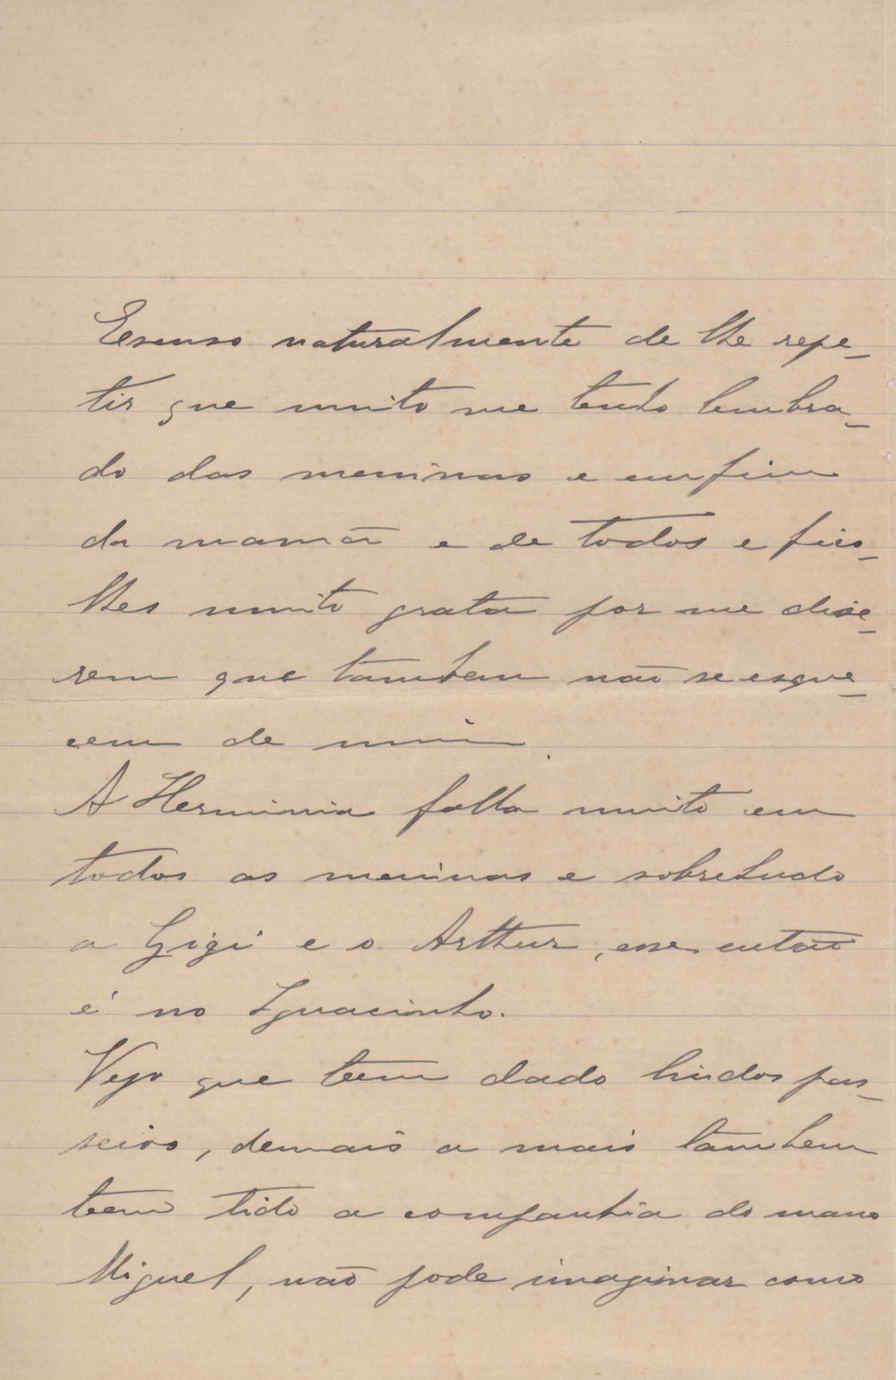 Escuso naturalmente de lhe repe-
tir que muito me tenho lembra-
do das meninas e emfim
da mamã e de todos e fico-
lhes muito grata por me dize-
rem que tambem não se esque-
cem de mim.
A Herminia falla muito em
todas as meninas e sobretudo
a Gigi e o Arthur, esse então
é no Iguacinho.
Vejo que tem dado lindos pas-
seios, demais a mais tambem
tem tido a companhia do mano
Miguel, não pode imaginar como